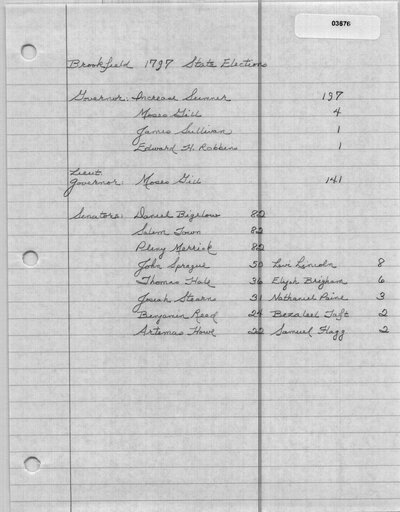 03676
Brookfield 1797 State Elections
Governor: Increase Sumner 197
Moses Gill 4
James Sullivan 1
Edward H. Robbins 1
Lieut.
Governor: Moses Gill 141
Senators: Daniel Bigelow 82
Salem Town 82
Pliny Merrick 82
John Sprague 50 Levi Lincoln 8
Thomas Hale 36 Elijah Brigham 6
Josiah Stearns 31 Nathaniel Paine 3
Benjamin Read 24 Bezaleel Taft 2
Artemas Howe 22 Samuel Flagg 2